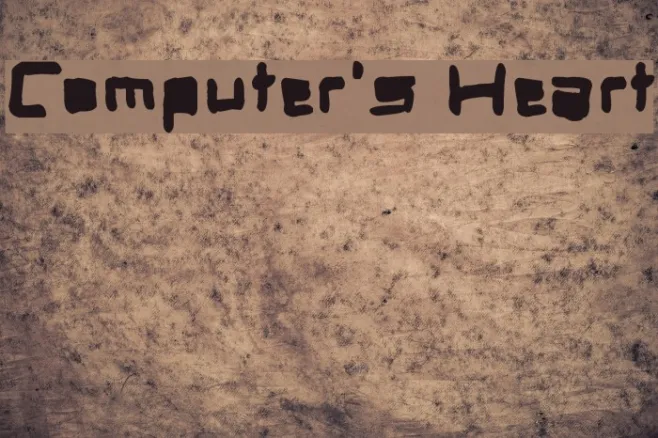 Computer's Heart